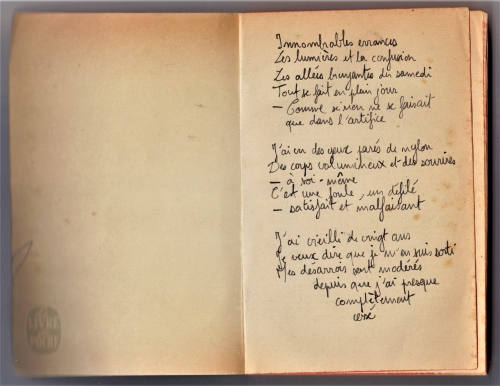 Innombrables errances
Les lumières et la confusion
Les allées bruyantes du samedi
Tout se fait en plein jour
– Comme si rien ne se faisait
que dans l'artifice
J'ai vu des yeux parés de nylon
Des corps volumineux et des sourires
– à soi-même
C'est une foule, un défilé
– satisfait et malfaisant
J'ai vieilli de vingt ans
Je veux dire que je m'en suis sorti
Mes désarrois sont modérés
depuis que j'ai presque
complètement
LE LIVRE
DE POCHE